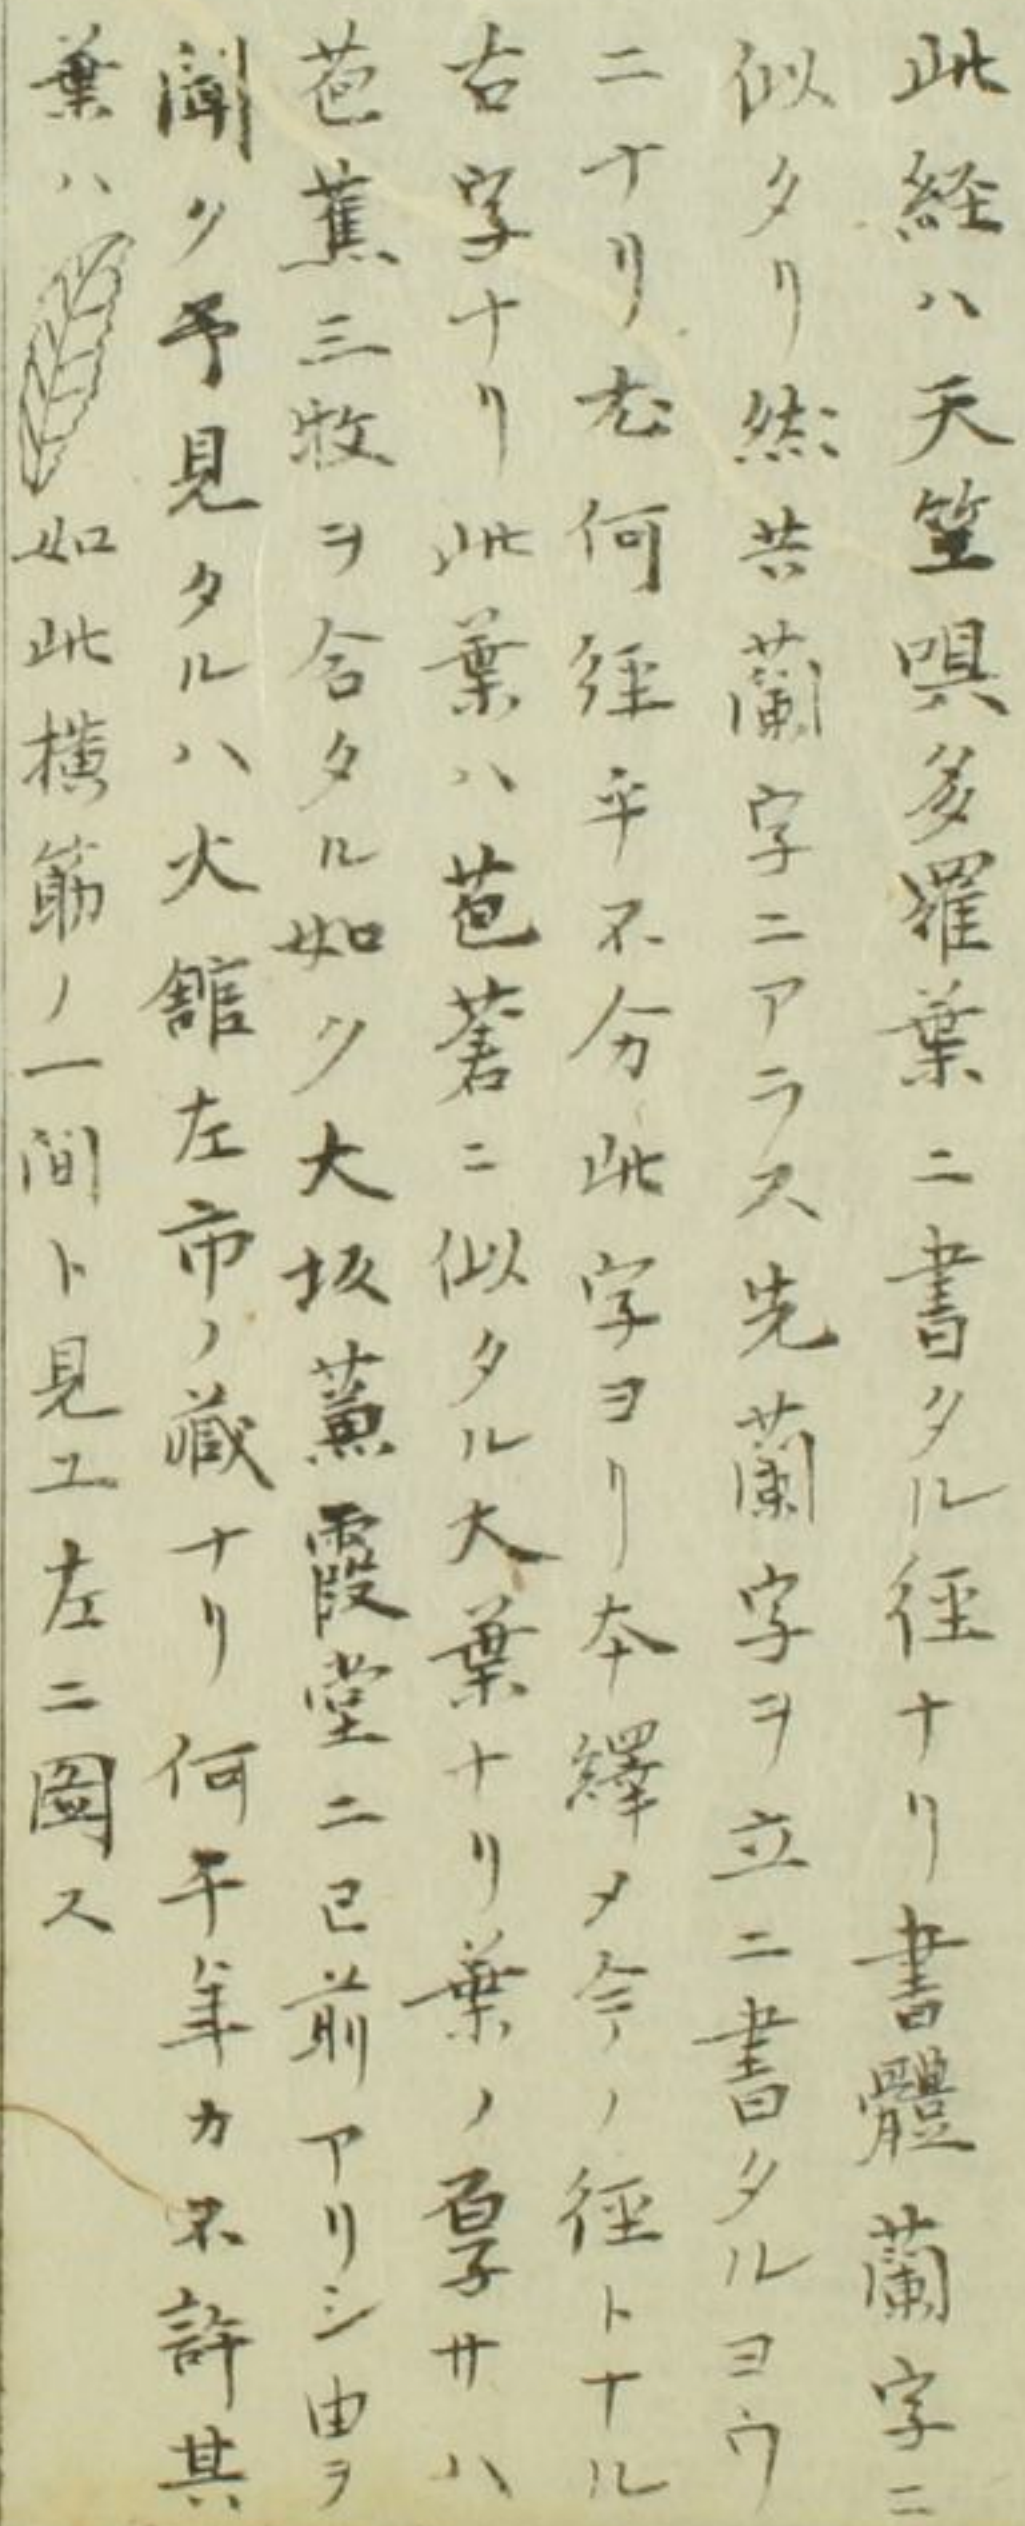 此経ハ天笠唄多羅葉ニ書タル径ナリ書體蘭字ニ
似タリ然共蘭字ニアラス先蘭字ヲ立ニ書タルヨウ
ニナリ尤何径乎不分此字ヨリ本繹メ今ノ径トナル
古字ナリ此葉ハ芭蕉ニ似タル大葉ナリ葉ノ厚サハ
芭蕉三牧ヲ合タル如ク大坂薫霞堂ニ已前アリシ由ヲ
聞ク予見タルハ大舘左市ノ蔵ナリ何千年カ不許其
葉ハ如此横筋ノ一間ト見エ左ニ図ス